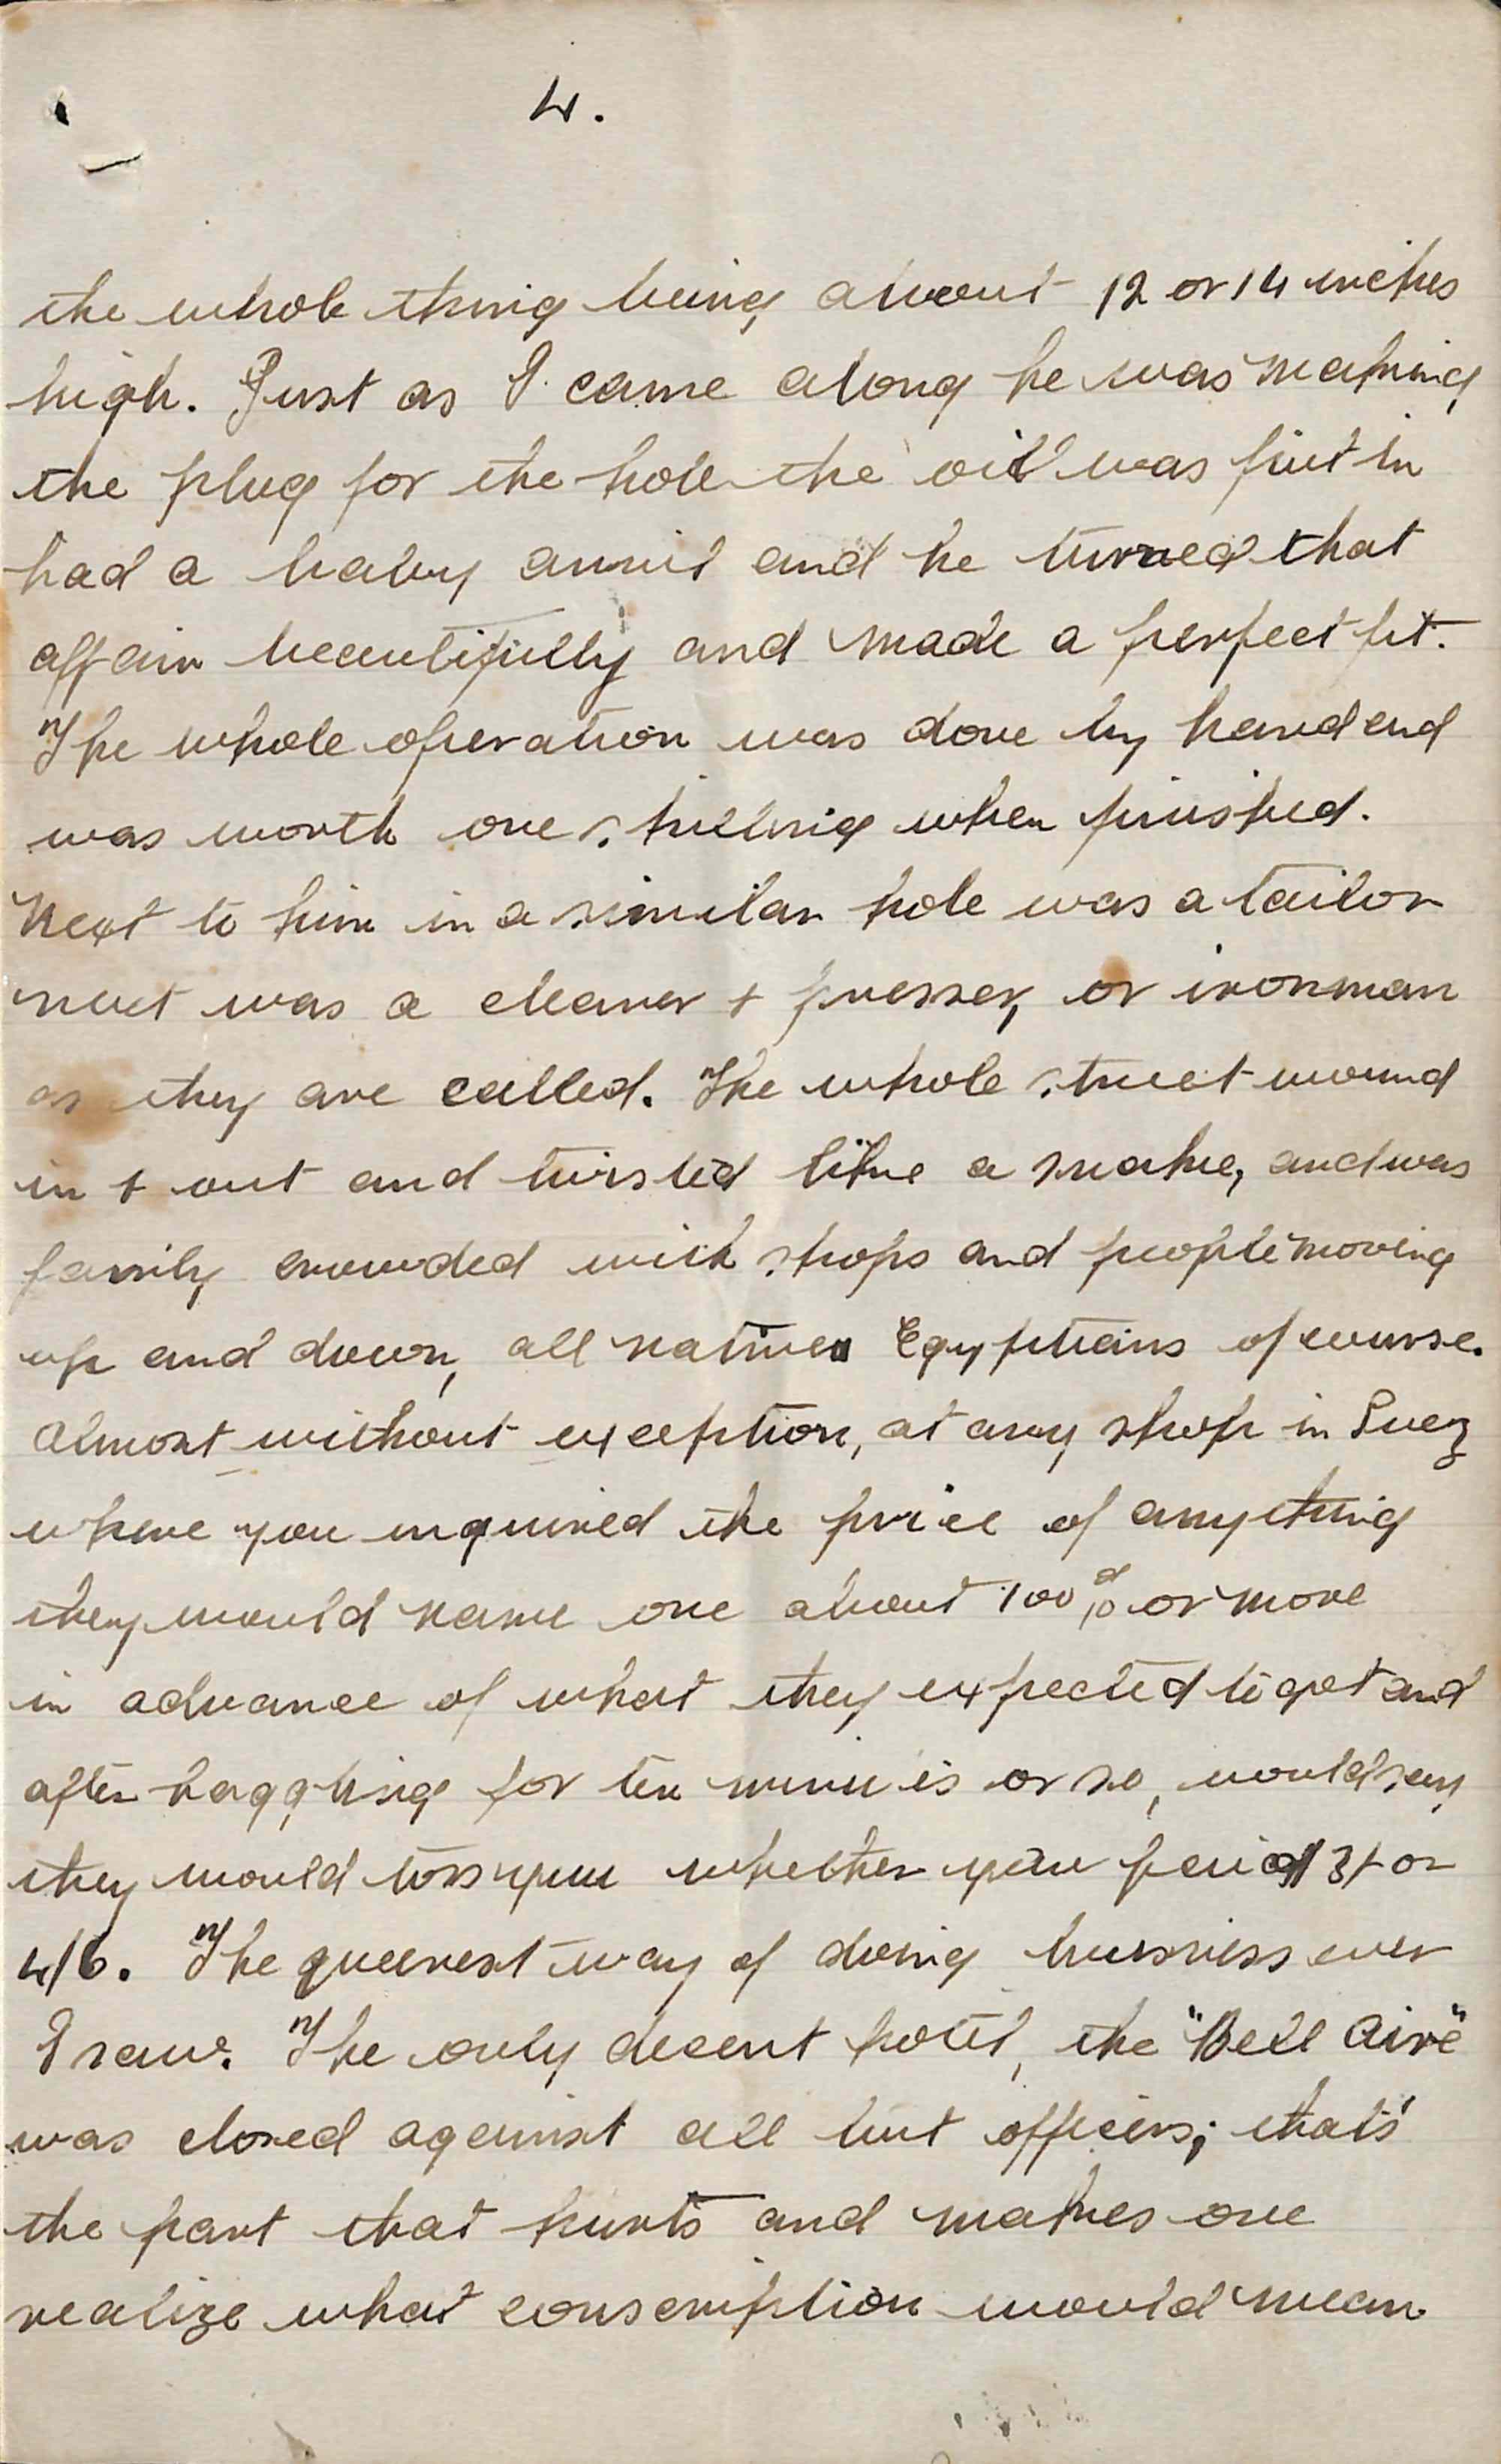 4.
the whole thing being about 12 or 14 inches
high. Just as I came along he was making
the plug for the hole the oil was put in
had a baby anvil and he turned that
affair beautifully and made a perfect fit.
The whole operation was done by hand and
was worth one shilling when finished.
Next to him in a similar hole was a tailor
next was a cleaner + presser, or ironman
as they are called. The whole street wound
in + out and twisted like a snake, and was
fairly crowded with shops and people moving
up and down, all natives Egyptians of course.
Almost without exception, at any shop in Suez
where you inquired the price of anything
they would name one about 100% or more
in advance of what they expected to get and
after haggling for ten minutes or so, would say
they would toss you whether you paid 3/- or
4/6. The queerest way of doing business ever
I saw. The only decent hotel, the "Bell Aire"
was closed against all but officers; that's
the part that hurts and makes one
realize what conscription would mean